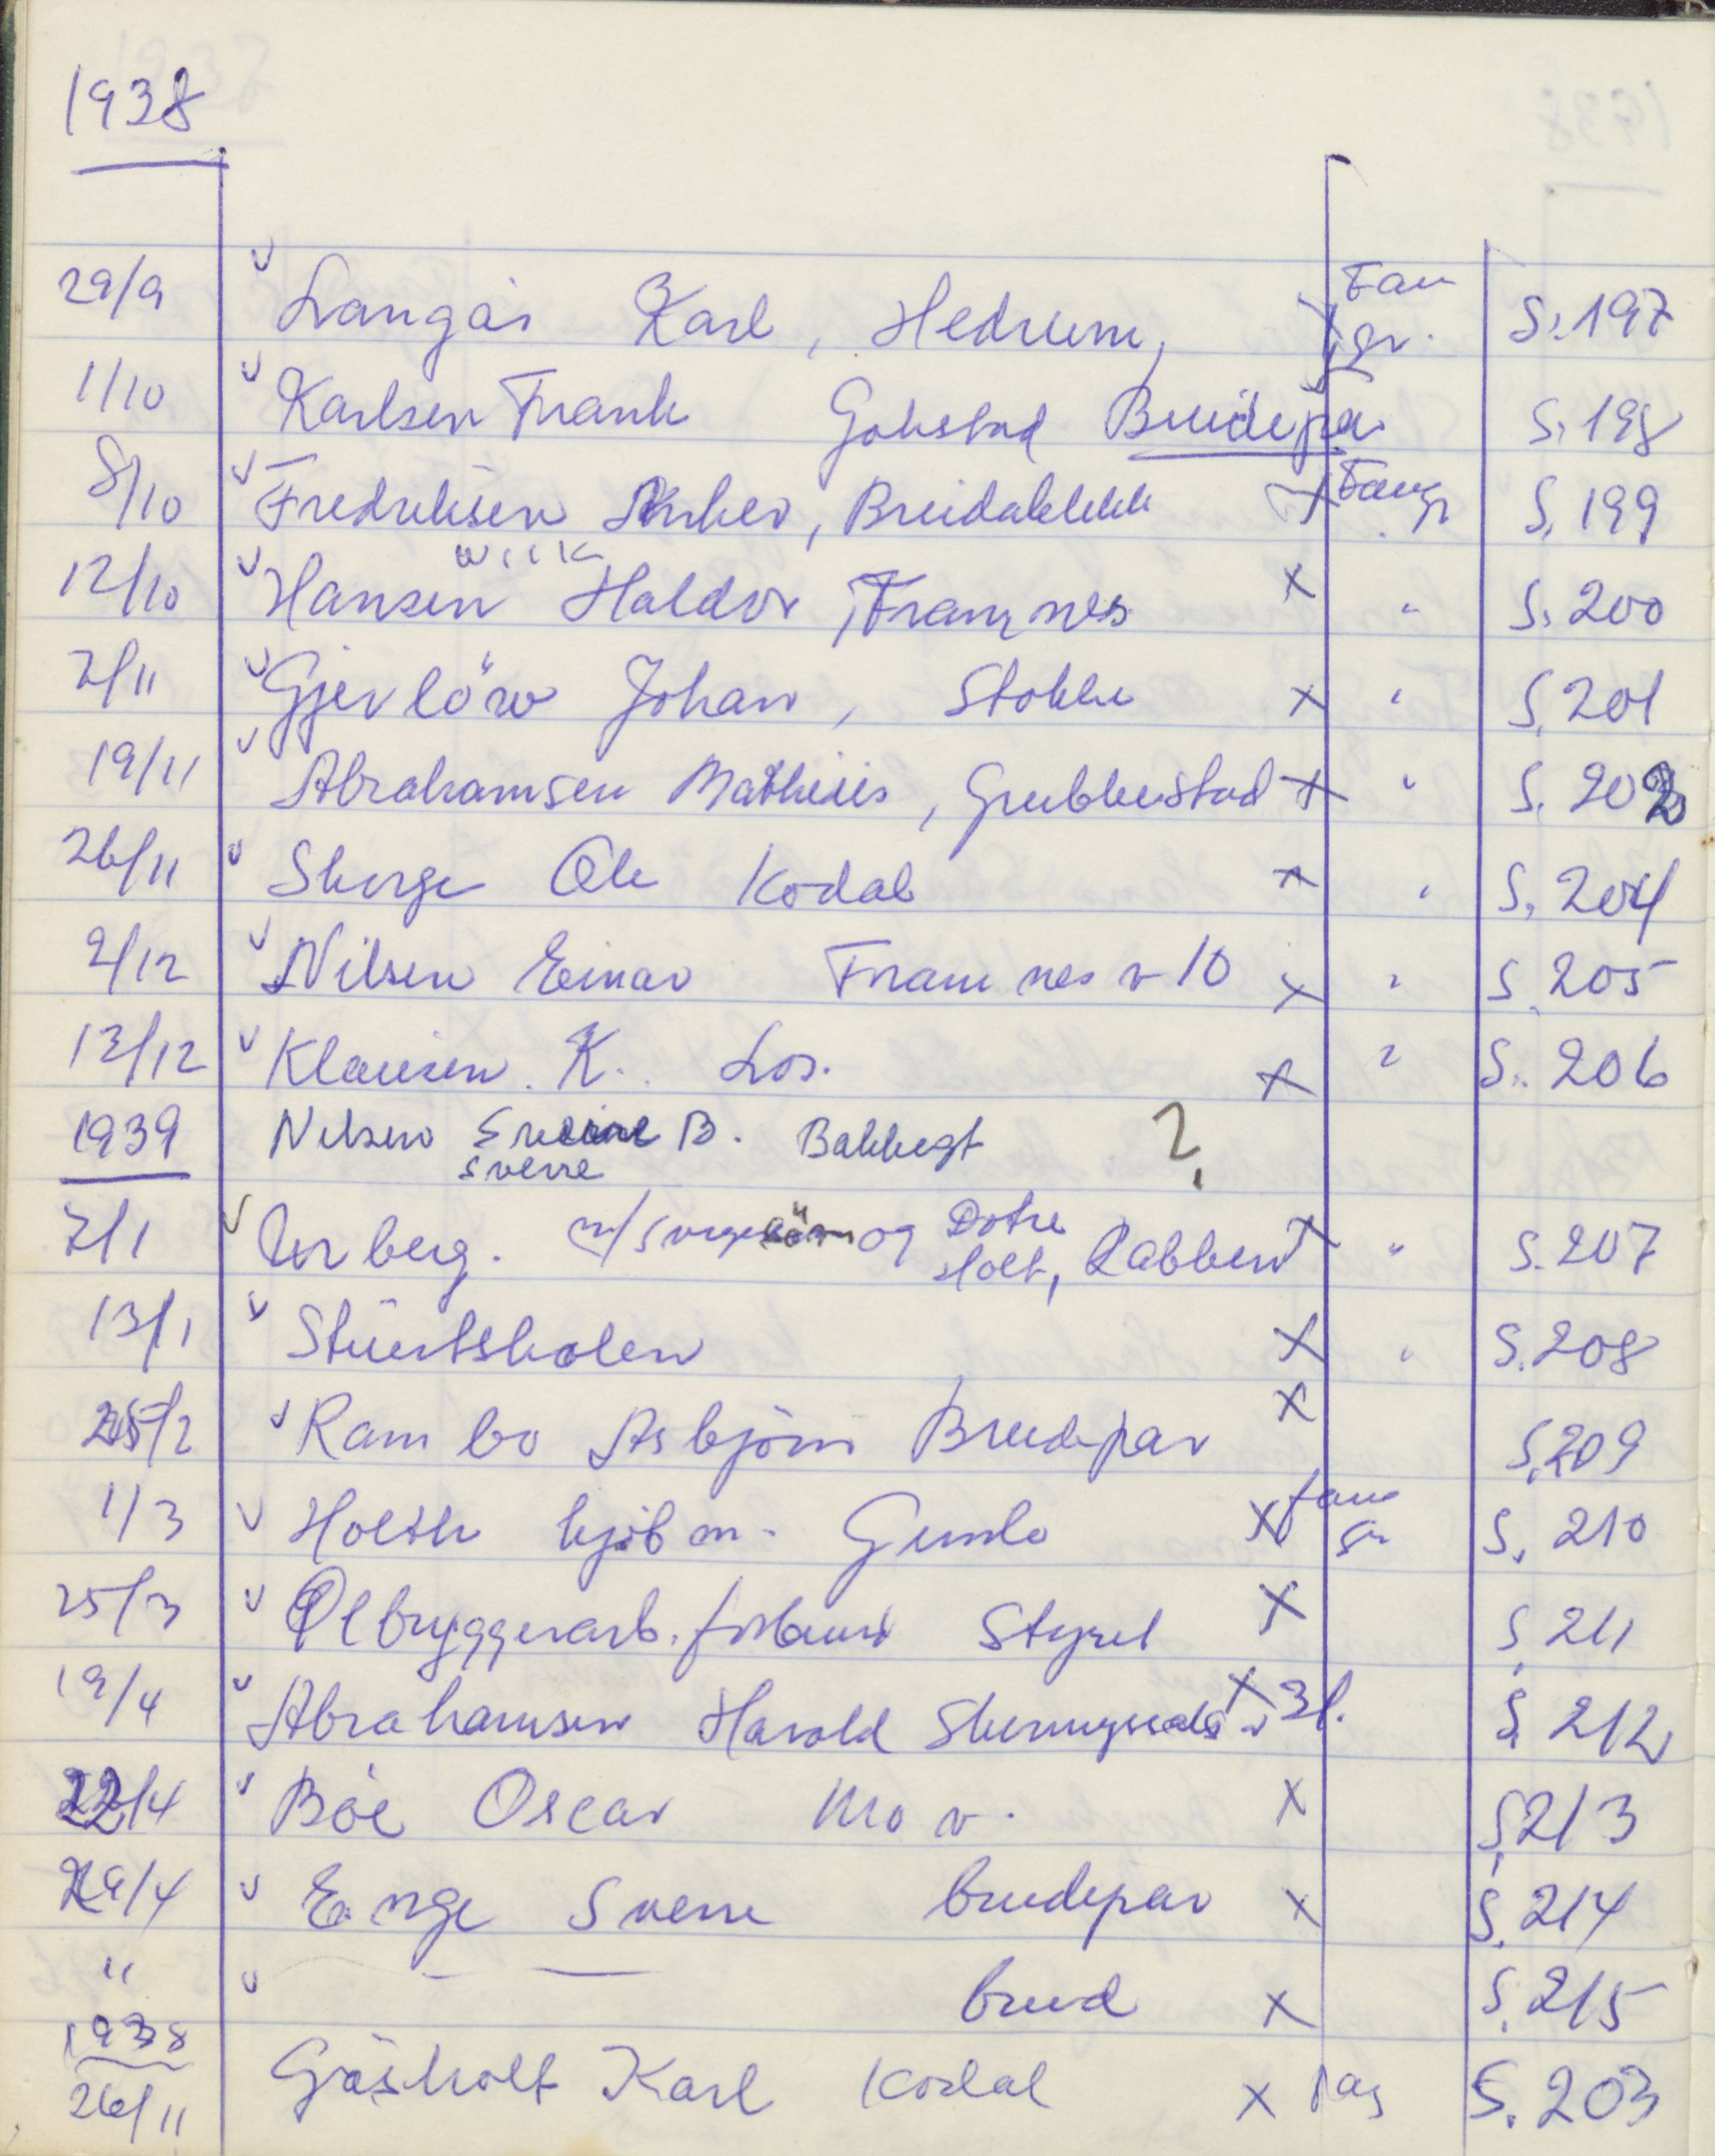 1938
29/9 Langås Karl, Hedrum, x Fam gr. S. 197
1/10 Karlsen Frank Gokstad Brudepar S. 198
8/10 Fredriksen Anker, Breidablikk x Fam gr S. 199
12/10 Hansen Wiik Haldor, Framnes x " S. 200
2/11 Gjerløw Johan, Stokke x " S. 201
19/11 Abrahamsen Mathias, Grubbestad x " S. 202
26/11 Skorge Ole Kodal x " S. 204
2/12 Nilsen Einar Framnes v 10 x " S. 205
13/12 Klausen K. Los. x " S. 206
1939 Nilsen Sverre B. Bakkegt ?
Sverre
7/1 Urberg. m/ og Døtre
Holt, Rabben x " S. 207
13/1 Stuertskolen x " S. 208
25/2 Rambo Asbjørn Brudepar x S. 209
1/3 Holth kjøbm. Gimle x fam gr S. 210
25/3 Ølbryggerarb. forbund Styret x S. 211
19/4 Abrahamsen Harald x 3/. S. 212
22/4 Bøe Oscar Mo v. x S. 213
29/4 Enge Sverre brudepar x S. 214
" — brud x S. 215
1938
26/11 Gåsholt Karl Kodal x S. 203